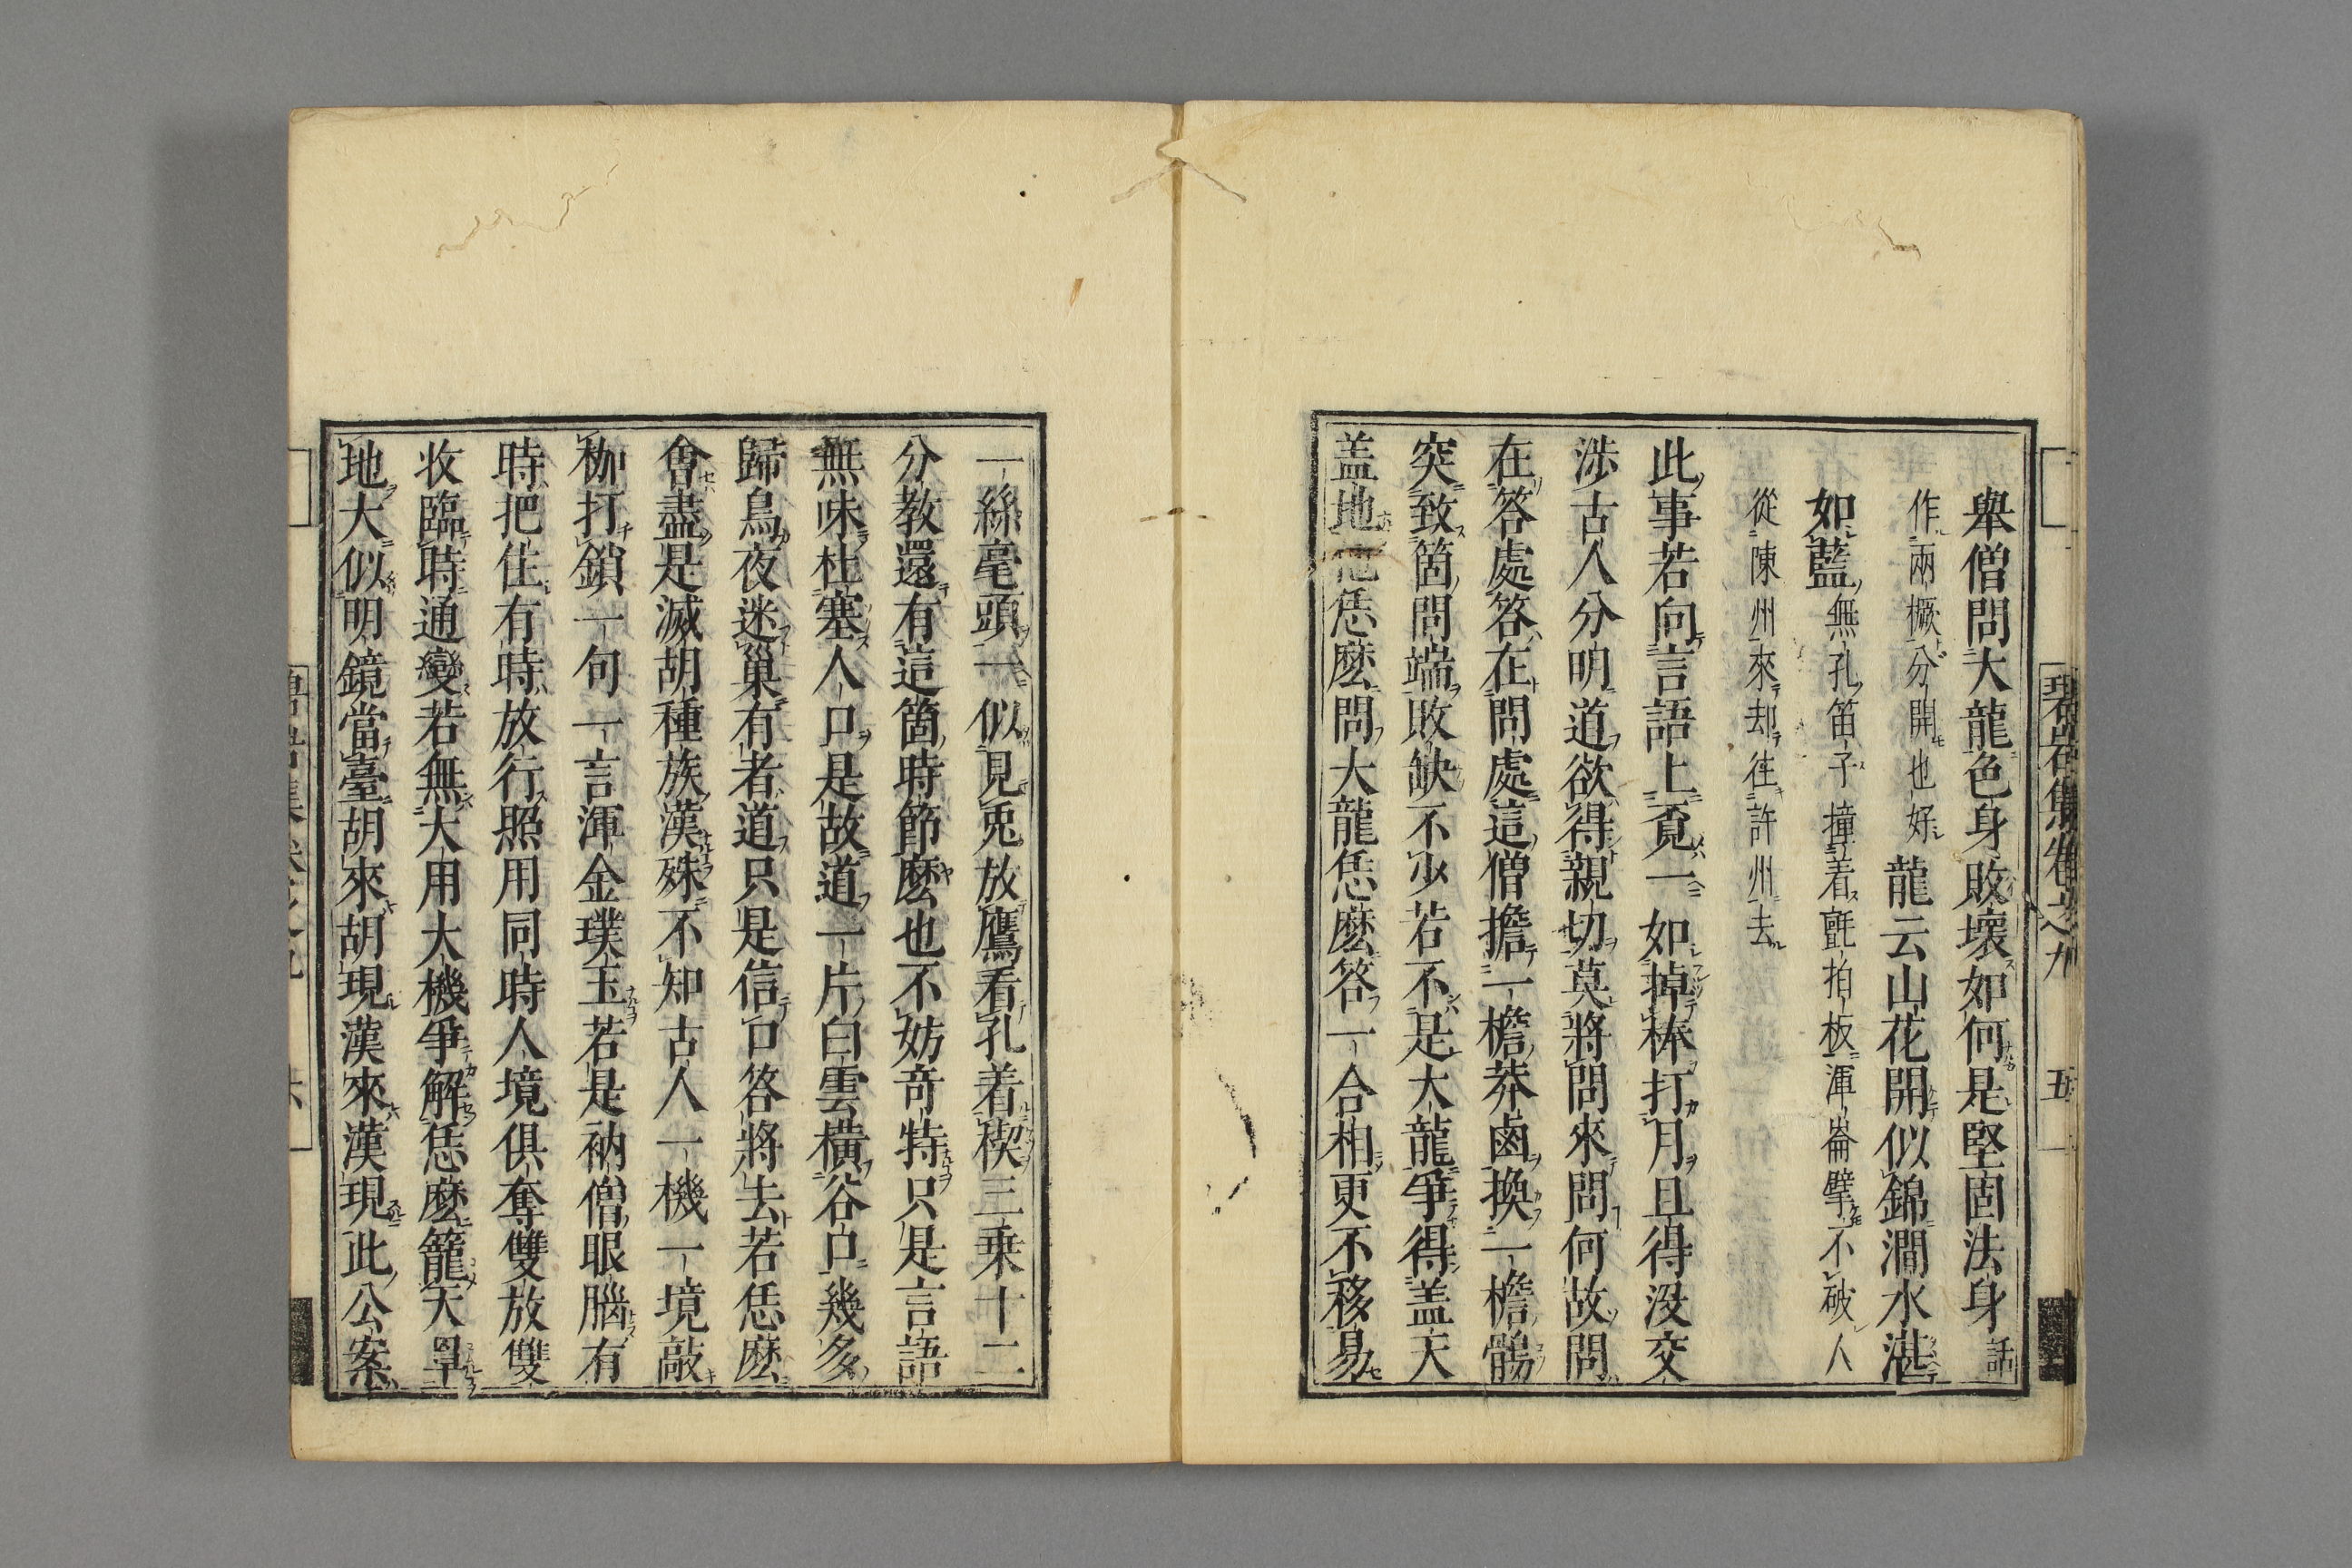 碧岩集卷之九 五
舉僧問大龍色身敗壞如何是堅固法身話
作兩橛分開也好龍云山花開似錦澗水湛
如藍無孔笛子撞着氈拍板渾崙擘不破人
從陳州來却往許州去
此事若向言語上覓一如掉棒打月且得没交
涉古人分明道欲得親切莫將問來問何故問
在答處答在問處這僧擔一檐莽鹵換一檐鶻
突致箇問端敗缺不少若不是大龍爭得盖天
盖地他恁麽問大龍恁麽答一合相更不移易
一絲毫頭一似見兎放鷹看孔着楔三乗十二
分教還有這箇時節麽也不妨竒特只是言語
無味杜塞人口是故道一片白雲横谷口幾多
歸鳥夜迷巢有者道只是信口答將去若恁麽
會盡是滅胡種族漢殊不知古人一機一境敲
枷打鎖一句一言渾金璞玉若是衲僧眼腦有
時把住有時放行照用同時人境俱奪雙放雙
收臨時通變若無大用大機爭解恁麽籠天罩
地大似明鏡當臺胡來胡現漢來漢現此公案